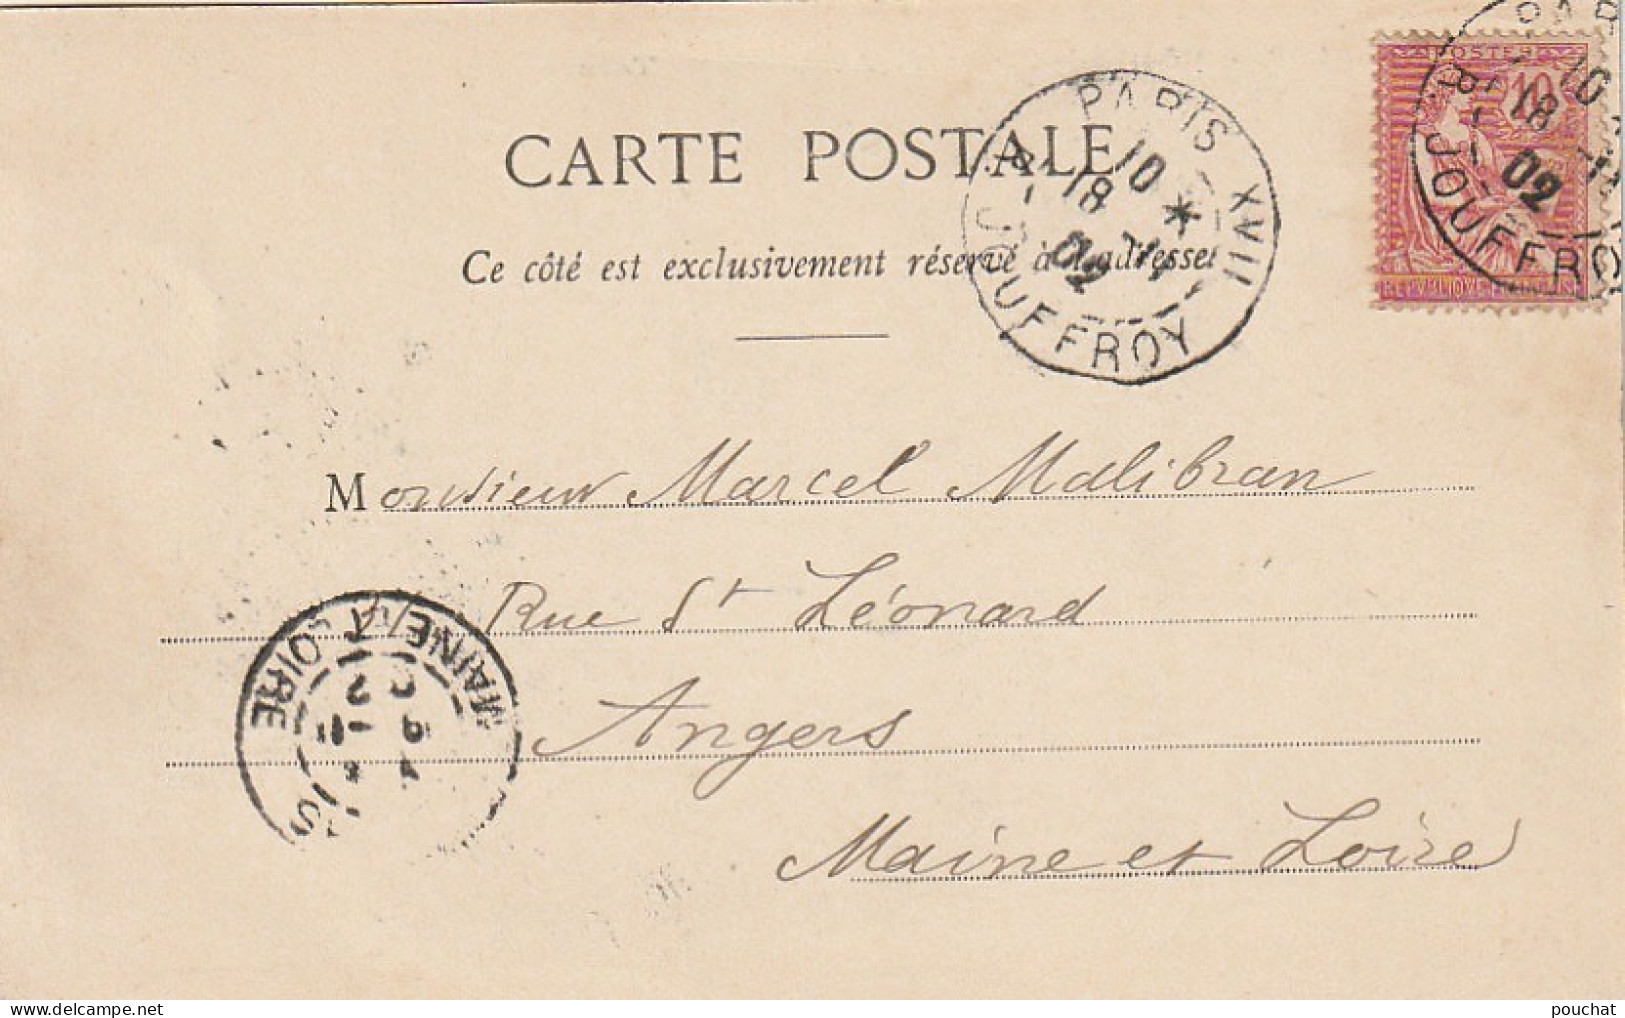 CARTE POSTALE
Ce côté est exclusivement réservé à l'adresse
PARIS XVII
R. JOUFFROY
10 *
18
02
POSTES
10
REPUBLIQUE FRANÇAISE
PAR
10
18
02
R. JOUFFRO
Monsieur Marcel Malibran
Rue St Léonard
Angers
Maine et Loire
MAINE ET LOIRE
pouchat